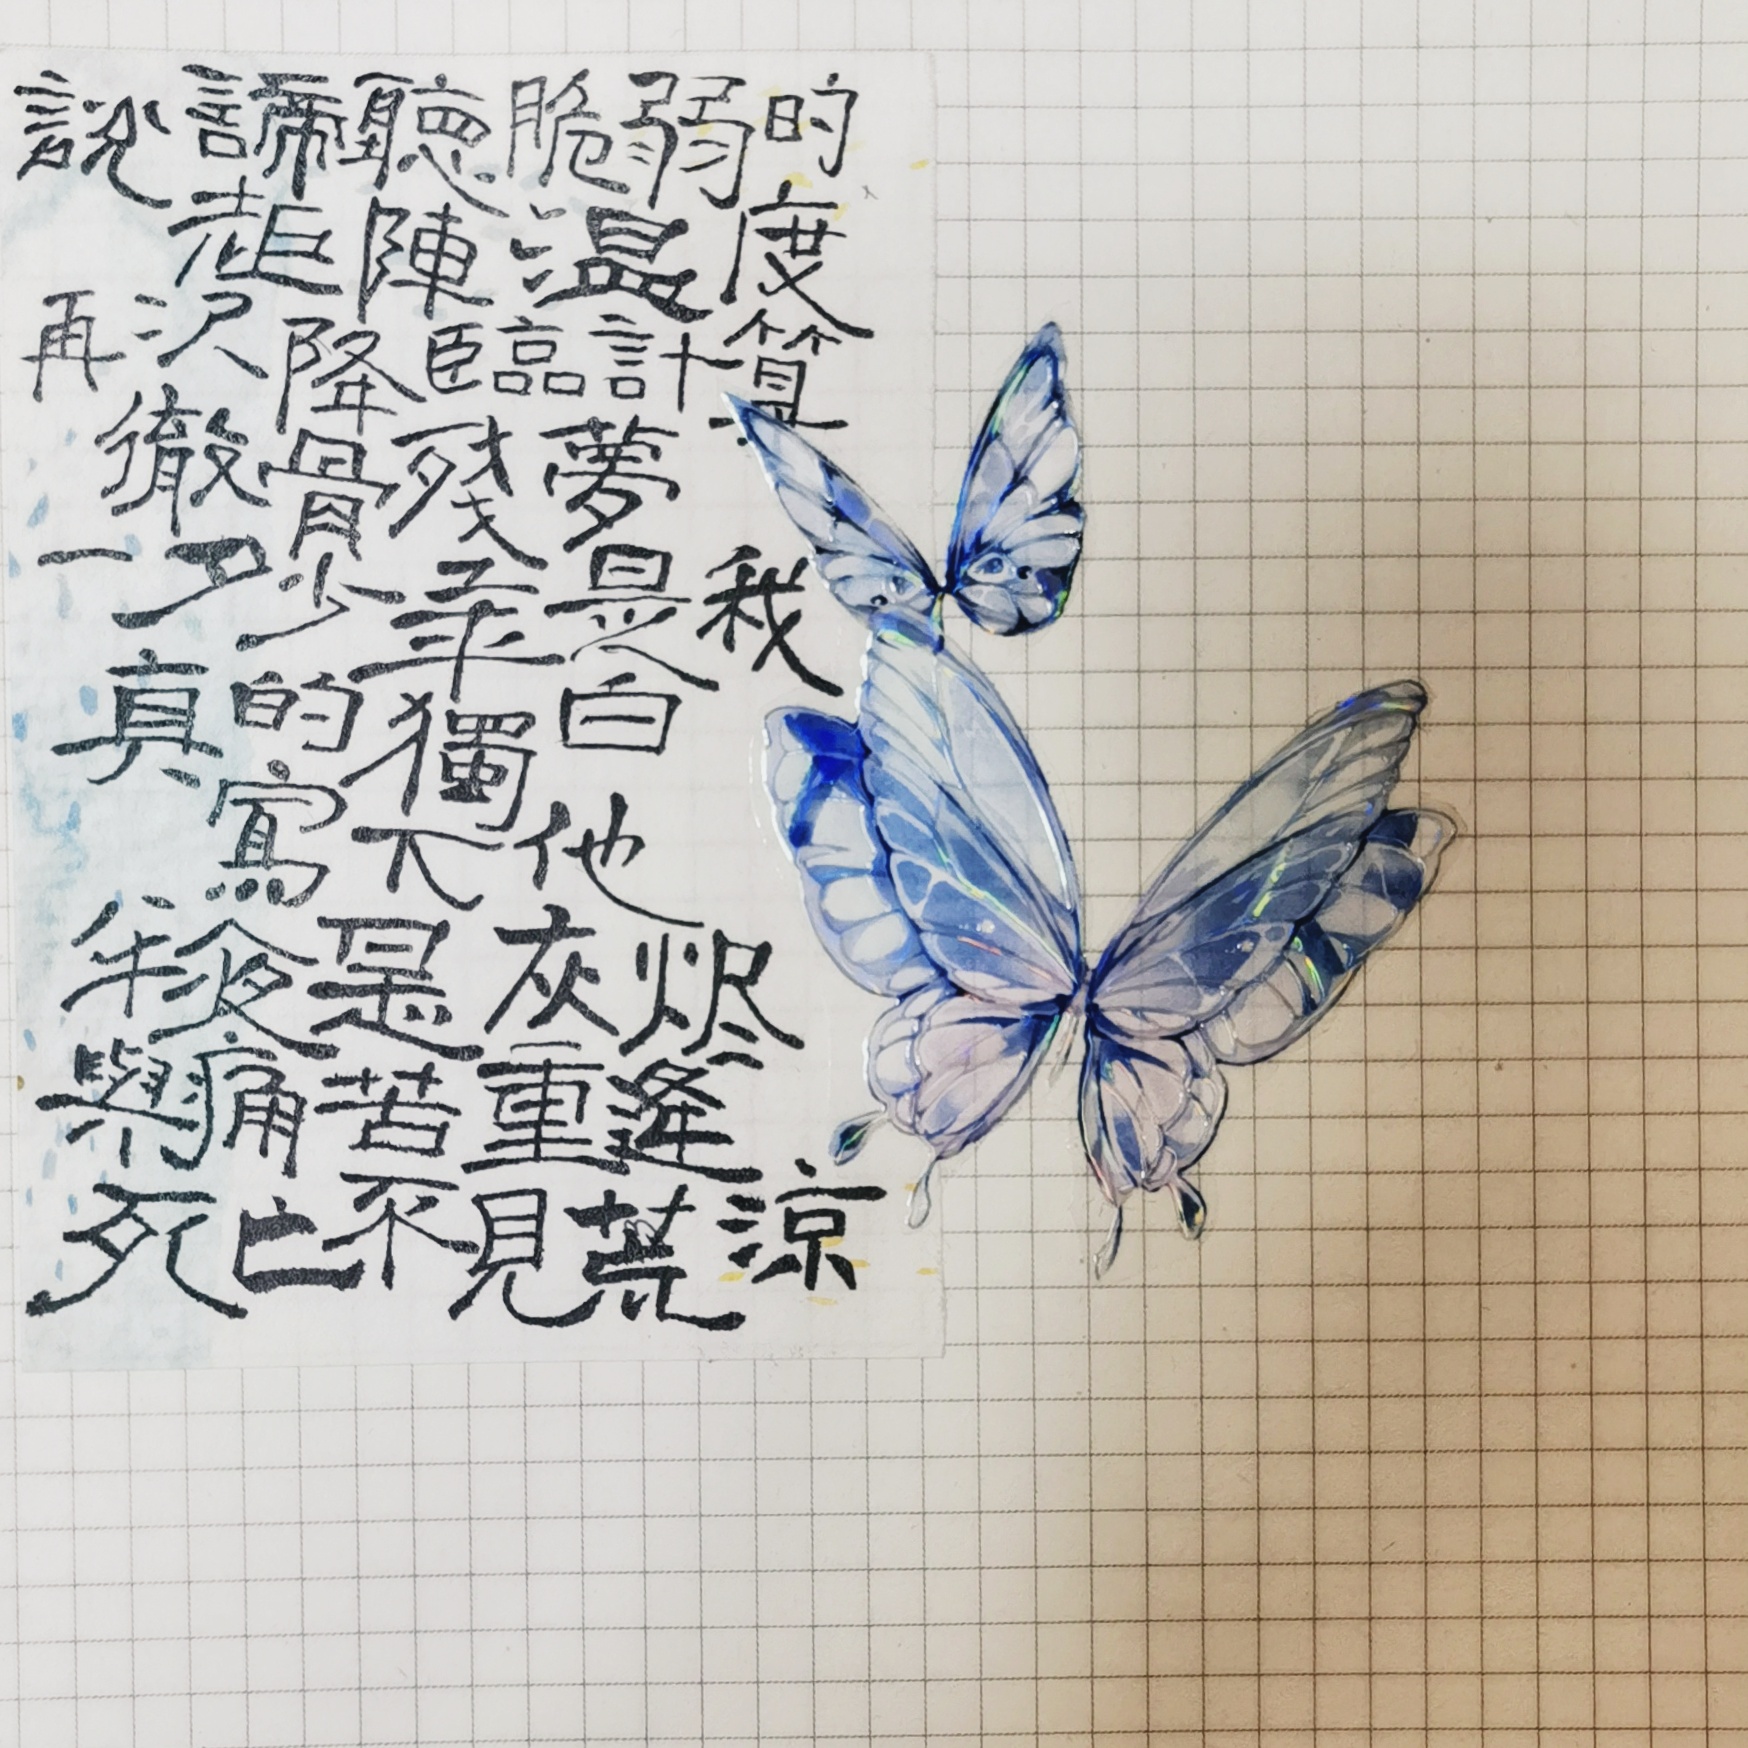 說諦聽脆弱的
陣溫度
再次降臨計算
徹骨殘夢
一少年是我
真的獨白
寫下他
年夜是灰烬
與痛苦重逢
死亡不見荒涼